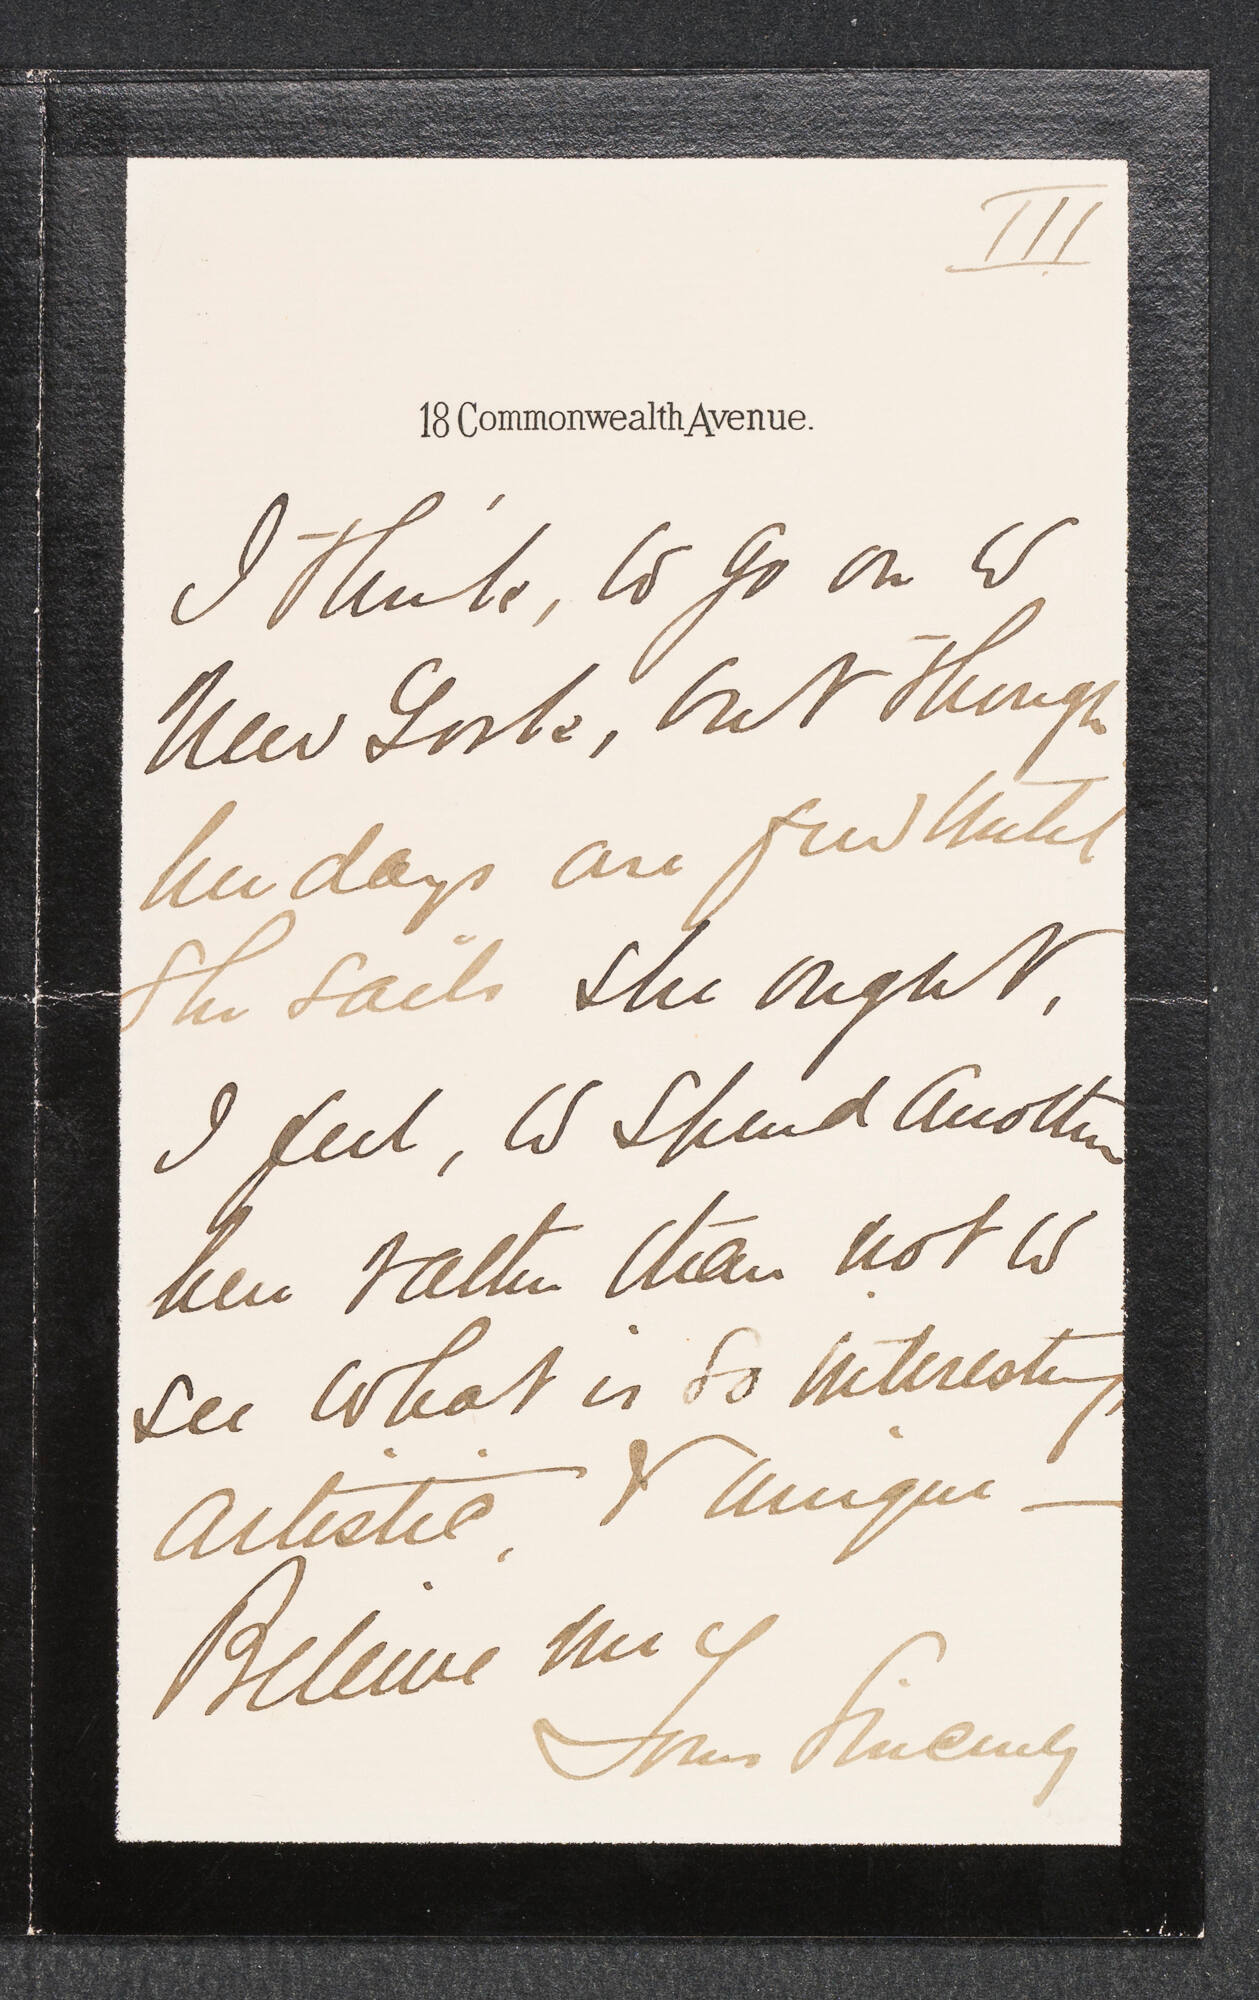 III
18 Commonwealth Avenue.
I think, to go on to
New York, but though
her days are few until
she sails she ought,
I feel, to spend another
here rather than not to
see what is so interesting,
artistic, & unique —
Believe me
Yours Sincerely